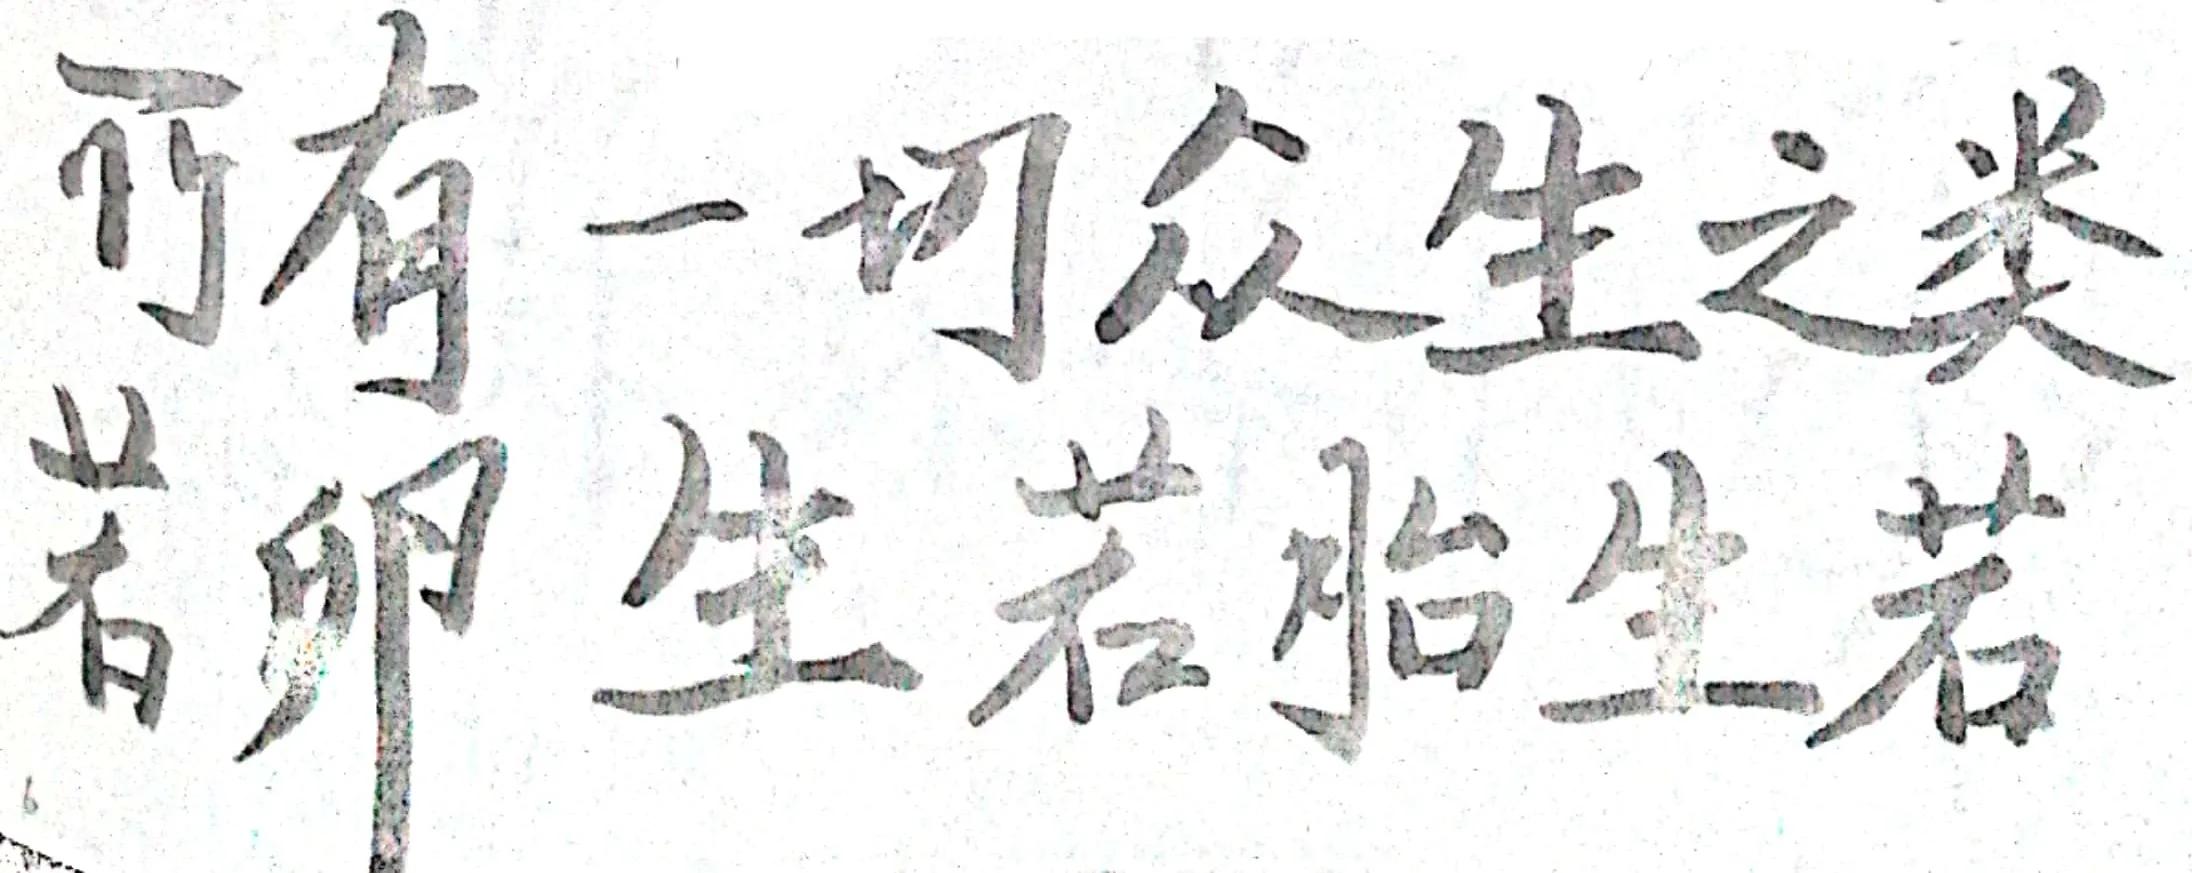 所有一切众生之类
若卵生若胎生若